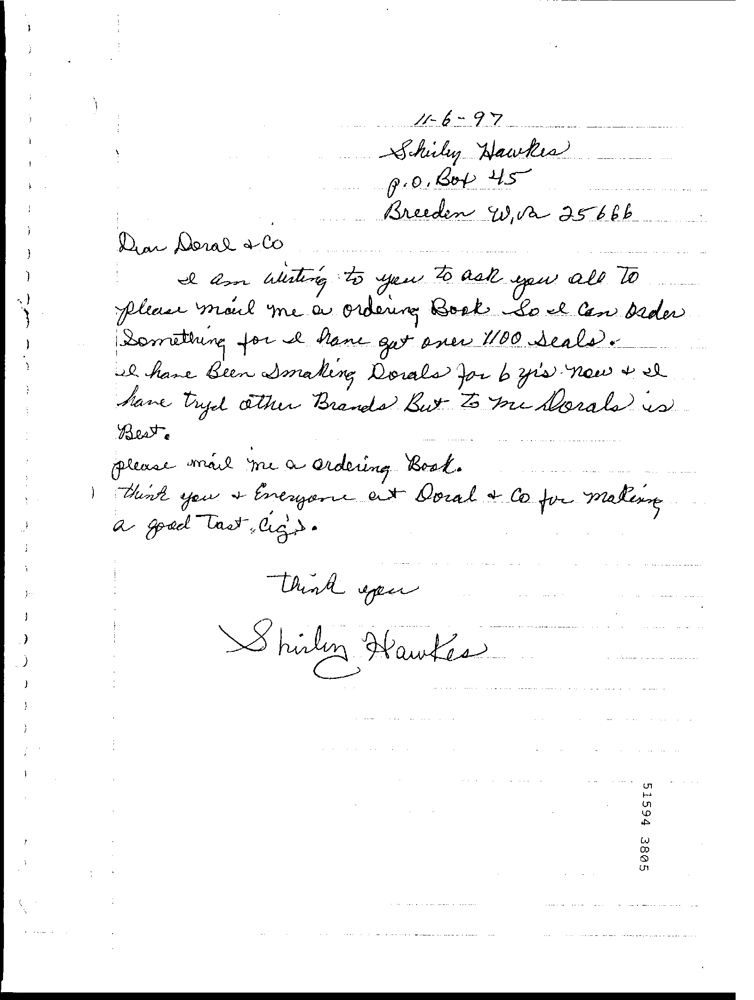 11-6-97
Shirley Hawkes
P.O. Box 45
Breeden W, Va 25666
Dear Doral & Co
I am writing to you to ask you all to
please mail me a ordering Book So I can order
Something for I have got over 1100 seals.
I have Been Smoking Dorals for 6 yrs now & I
have tryd other Brands But to me Dorals is
Best.
please mail me a ordering Book.
think you & Everyone at Doral & Co for making
a good Tast, Cig's.
think you
Shirley Hawkes
51594 3805